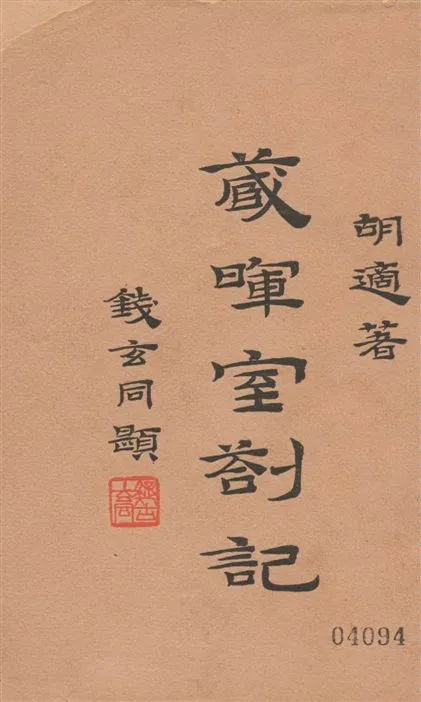 胡適著
藏暉室劄記
錢玄同顯
04094